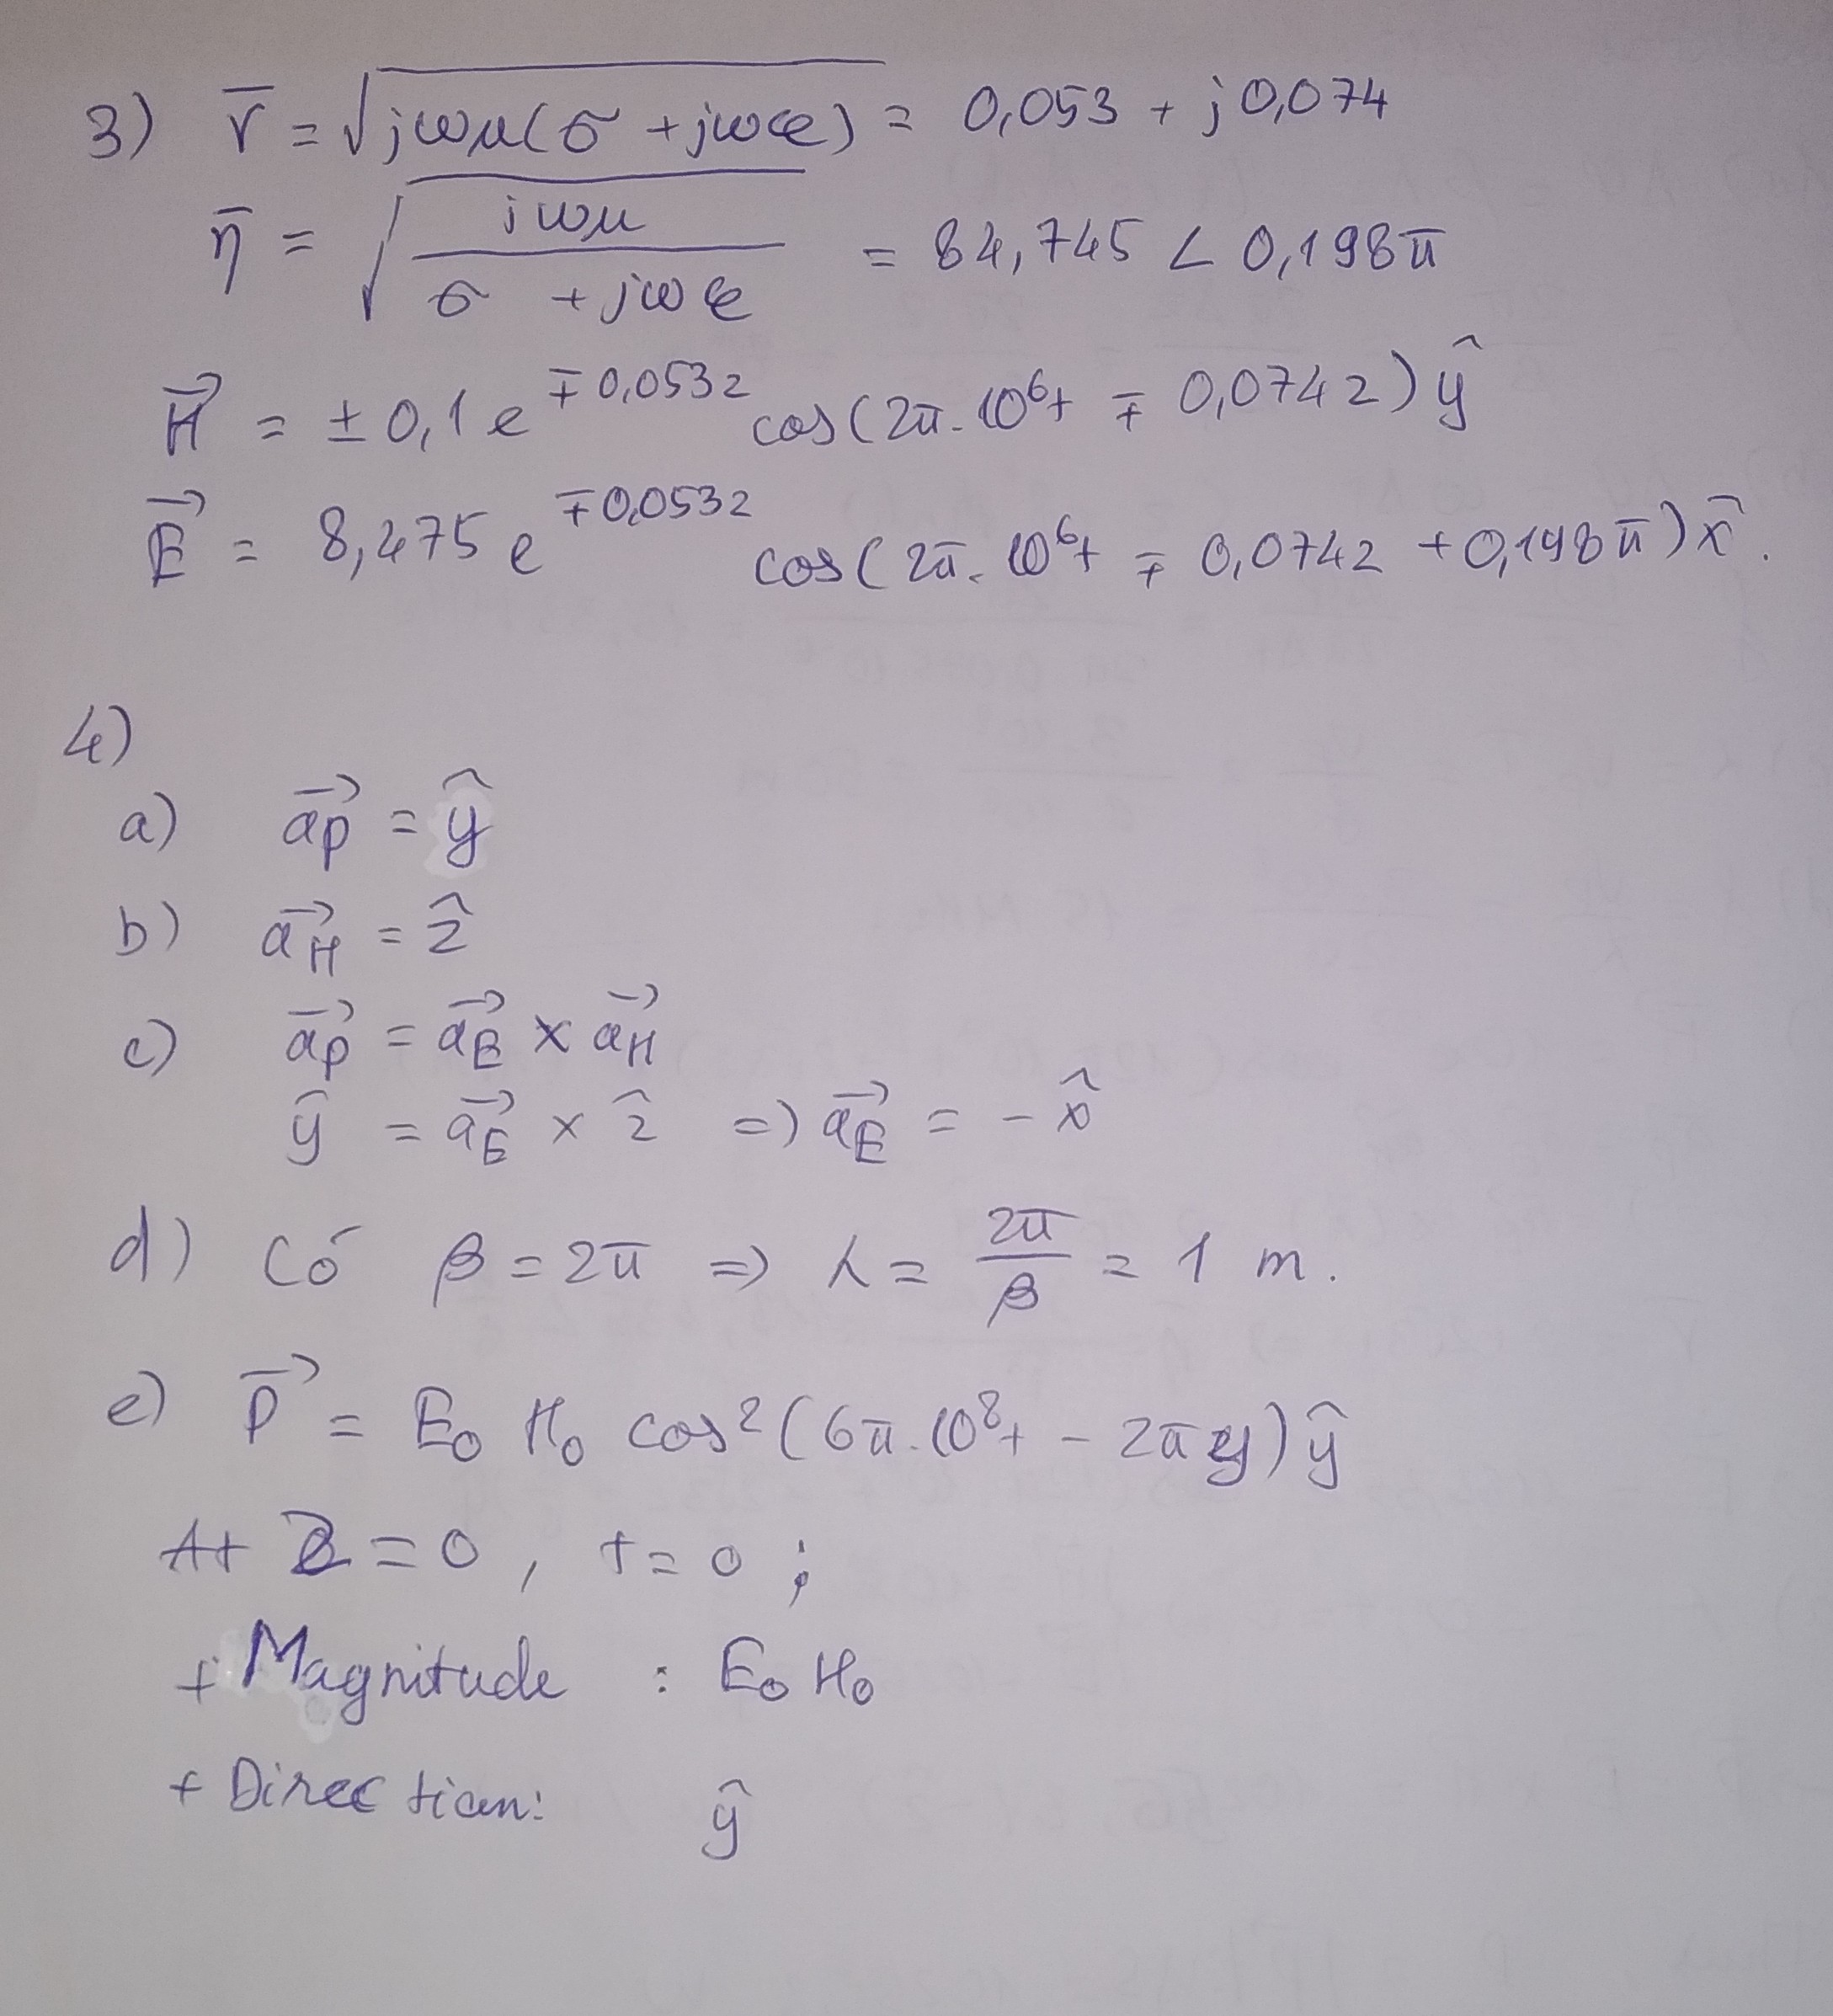 3) γ̅ = √(jωμ(σ + jωϵ)) = 0,053 + j0,074
η̅ = √(jωμ / (σ + jωϵ)) = 84,745 ∠ 0,198π
H⃗ = ± 0,1 e^(∓0,053z) cos(2π.10⁶t ∓ 0,074z) ŷ
E⃗ = 8,475 e^(∓0,053z) cos(2π.10⁶t ∓ 0,074z + 0,198π) x̂.
4)
a) a⃗p = ŷ
b) a⃗H = ẑ
c) a⃗p = a⃗E × a⃗H
ŷ = a⃗E × ẑ => a⃗E = - x̂
d) Có β = 2π => λ = 2π/β = 1 m.
e) P⃗ = E₀ H₀ cos²(6π.10⁸t - 2πy) ŷ
At z = 0, t = 0 ;
+ Magnitude : E₀ H₀
+ Direction: ŷ